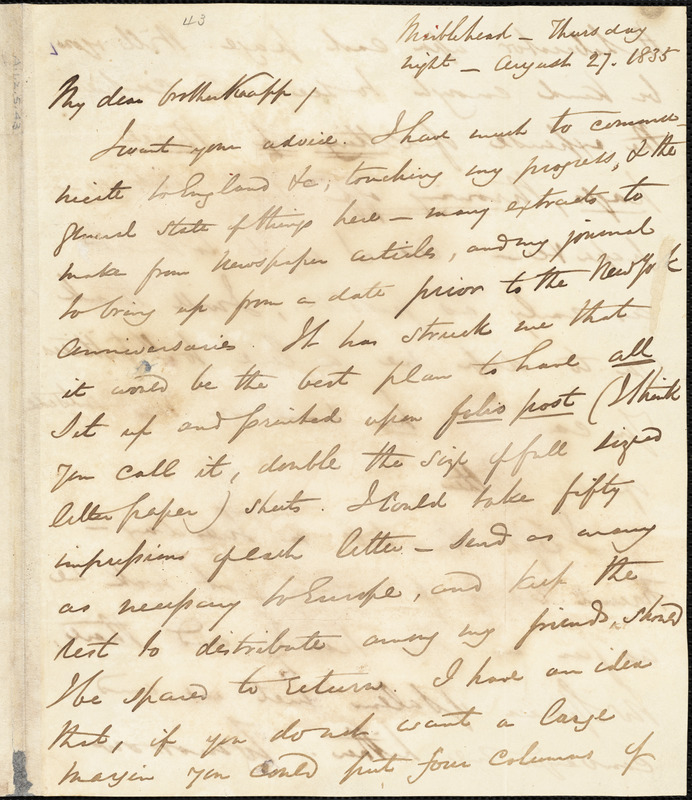 43
Marblehead - Thursday
night - August 27. 1835
My dear brother Knapp,
I want your advice. I have much to commu-
nicate to England &c, touching my progress, & the
general state of things here - many extracts to
make from newspaper articles, and my journal
to bring up from a date prior to the New York
Anniversaries. It has struck me that
it would be the best plan to have all
set up and printed upon folio post (I think
you call it, double the size of full sized
letter paper) sheets. I could take fifty
impressions of each letter - send as many
as necessary to Europe, and keep the
rest to distribute among my friends, should
I be spared to return. I have an idea
that, if you do not want a large
margin you could put four columns of